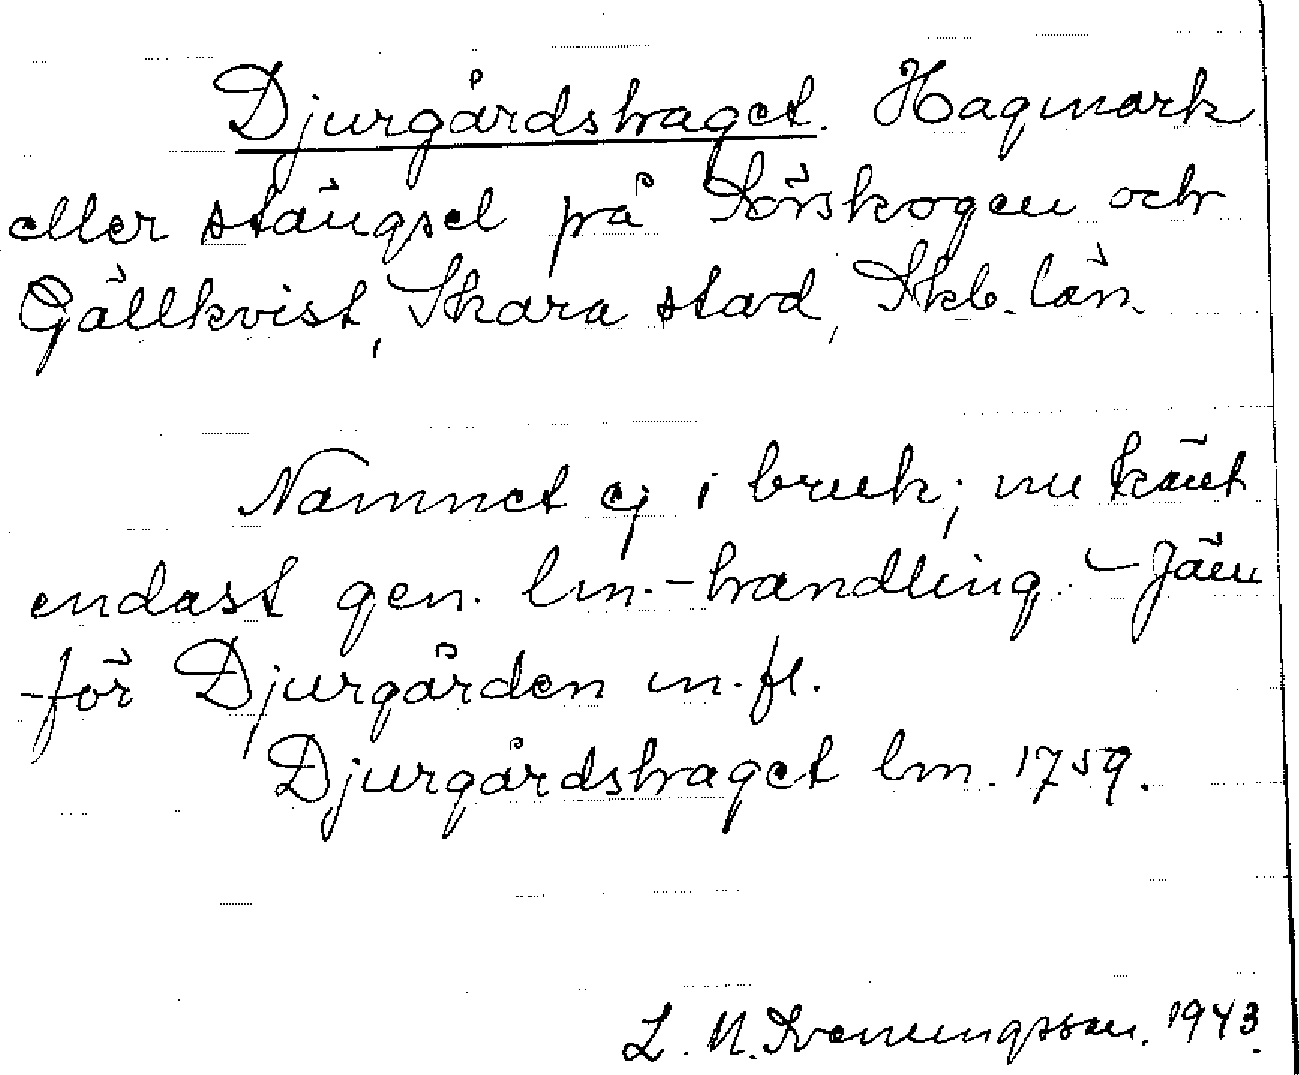 Djurgårdshaget. Hagmark
eller stängsel på Sörskogen och
Gällkvist, Skara stad, Skb. län.
Namnet ej i bruk; nu känt
endast gen. lm.-handling. - Jäm
-för Djurgården m. fl.
Djurgårdshaget lm. 1759.
L. N. Svenungsson. 1943.